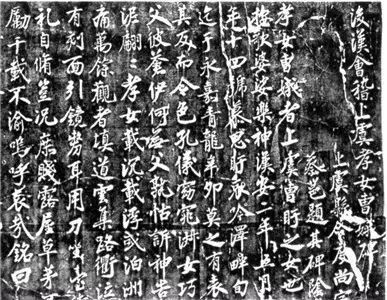 後漢會稽上虞孝女曹娥碑
上虞縣令度尚
蔡邕題其碑陰
孝女曹娥者上虞曹盱之女也
婆娑樂神漢安二年五月
年十四號慕思盱哀吟澤畔旬
迄于永嘉青龍辛卯莫之有表
其反而令色孔儀窈窕淑女巧
父彼蒼伊何無父孰怙訴神告
泥翩翩孝女載沉載浮或泊洲
痛萬餘觀者填道雲集路衢泣
有剋面引鏡剺耳用刀坐臺
礼自脩豈況庶賤露屋草茅
勵千載不渝嗚呼哀哉銘曰